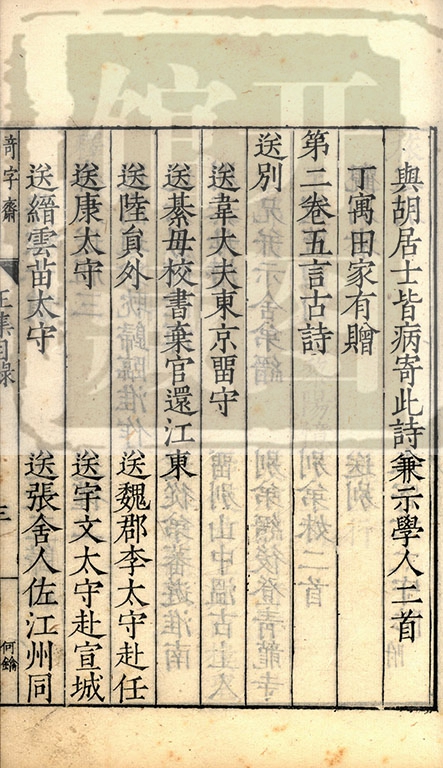 與胡居士皆病寄此詩兼示學人二首
丁寓田家有贈
第二卷五言古詩
送別
送韋大夫東京畱守
送綦毋校書棄官還江東
送陸員外 送魏郡李太守赴任
送康太守 送宇文太守赴宣城
送縉雲苗太守 送張舍人佐江州同
奇字齋
王集目錄
三
何鑰